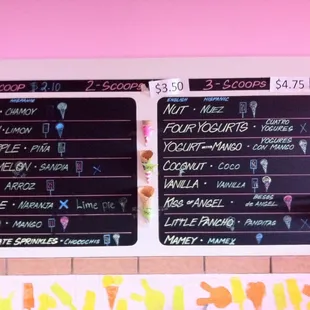 SCOOP $2.10 2-SCOOPS $3.50 3-SCOOPS $4.75
HISPANIC
• CHAMOY
• LIMON
• PIÑA
• SANDIA
ARROZ
• NARANJA Lime pie
• MANGO
SPRINKLES • CHOCOCHIS
ENGLISH HISPANIC
NUT • NUEZ
FOUR YOGURTS • CUATRO YOGURES
YOGURT WITH MANGO • YOGURES CON MANGO
COCONUT • COCO
VANILLA • VAINILLA
KISS OF ANGEL • BESES DE ANGEL
LITTLE PANCHO • PANDITAS
MAMEY • MAMEX